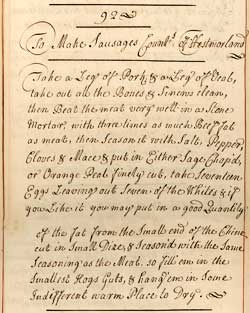 92
To Make Sausages Count:s of Westmorland
Take a Leg of Pork, & a Leg of Veal,
take out all the Bones & Sinews clean,
then Beat the meat very well in a Stone
Mortar, with three times as much Beef Sut
as meat, then Season it with Salt, Pepper,
Cloves & Mace & put in Either Sage Chop'd,
or Orange Peal finely cut, take Seventeen
Eggs Leaving out Seven of the Whites & if
you Like it you may put in a good Quantity
of the fat from the Small End of the Chine
cut in Small Dice, & Season'd with the Same
Seasoning as the Meat, so fill 'em in the
Smallest Hogs Guts, & hang 'em in Some
Indifferent warm Place to Dry.